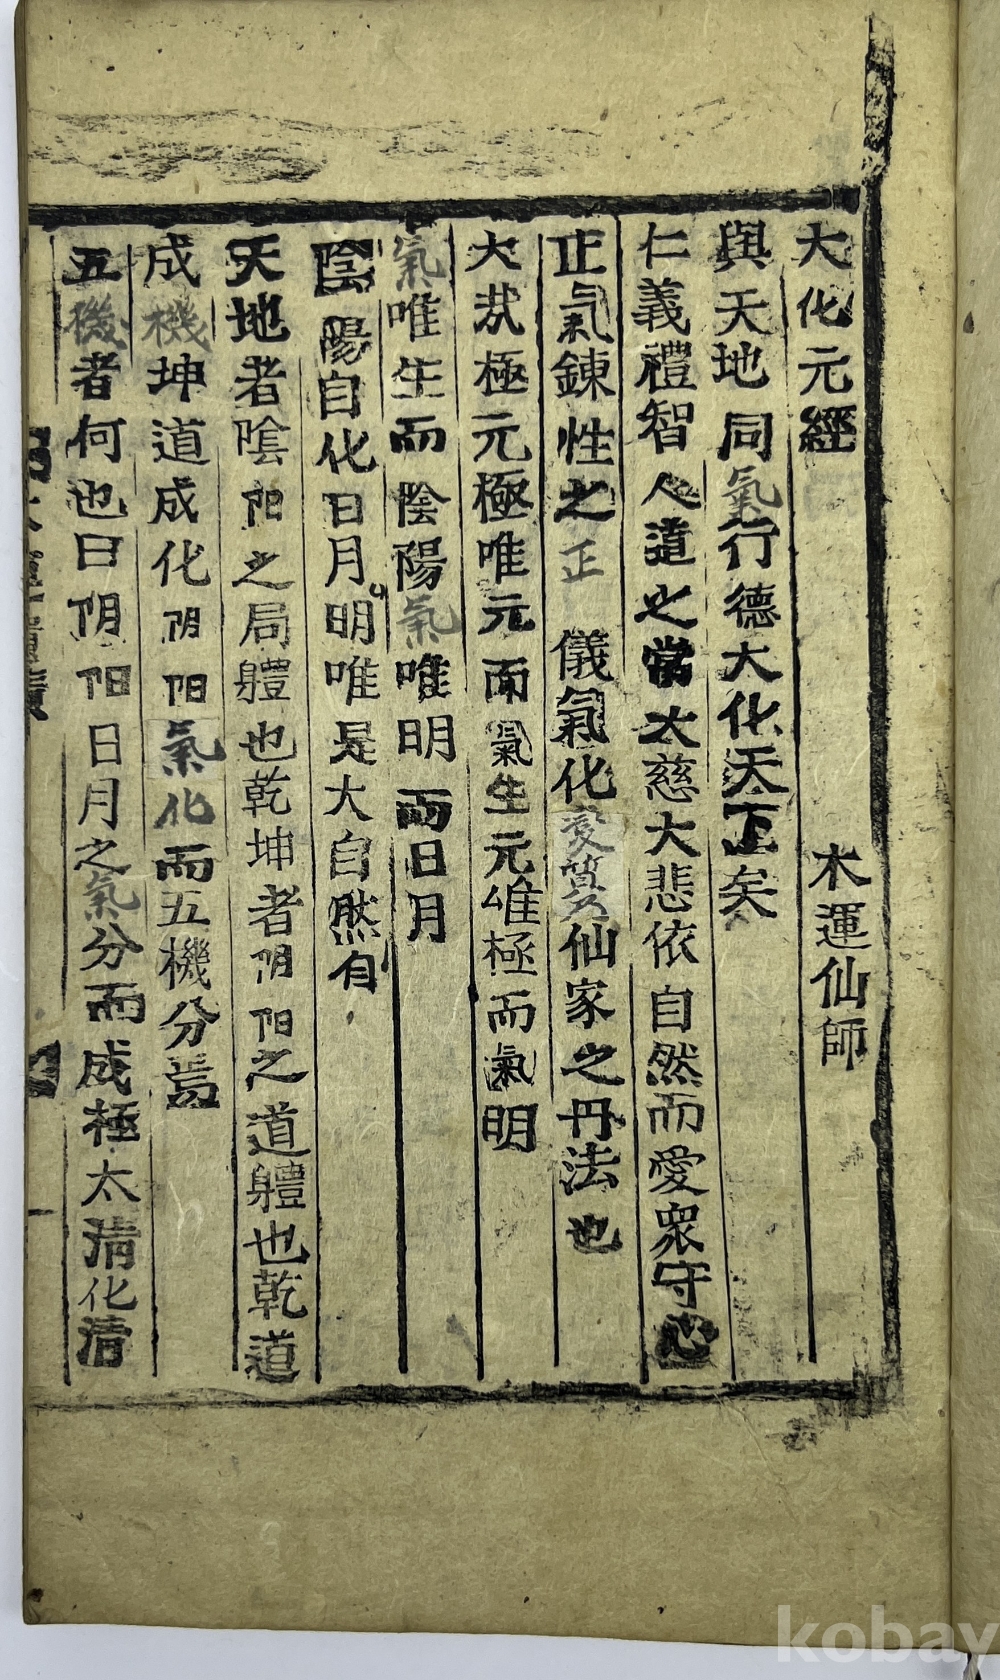 大化元經
木運仙師
與天地同氣行德大化天下矣
仁義禮智人道之常大慈大悲依自然而愛衆守心
正氣鍊性之正儀氣化変質乃仙家之丹法也
大哉極元極唯元而氣生元唯極而氣明
氣唯生而陰陽氣唯明而日月
陰陽自化日月明唯是大自然有
天地者陰阳之局體也乾坤者阴阳之道體也乾道
成機坤道成化阴阳氣化而五機分焉
五機者何也曰阴阳日月之氣分而成極太清化清
kobay